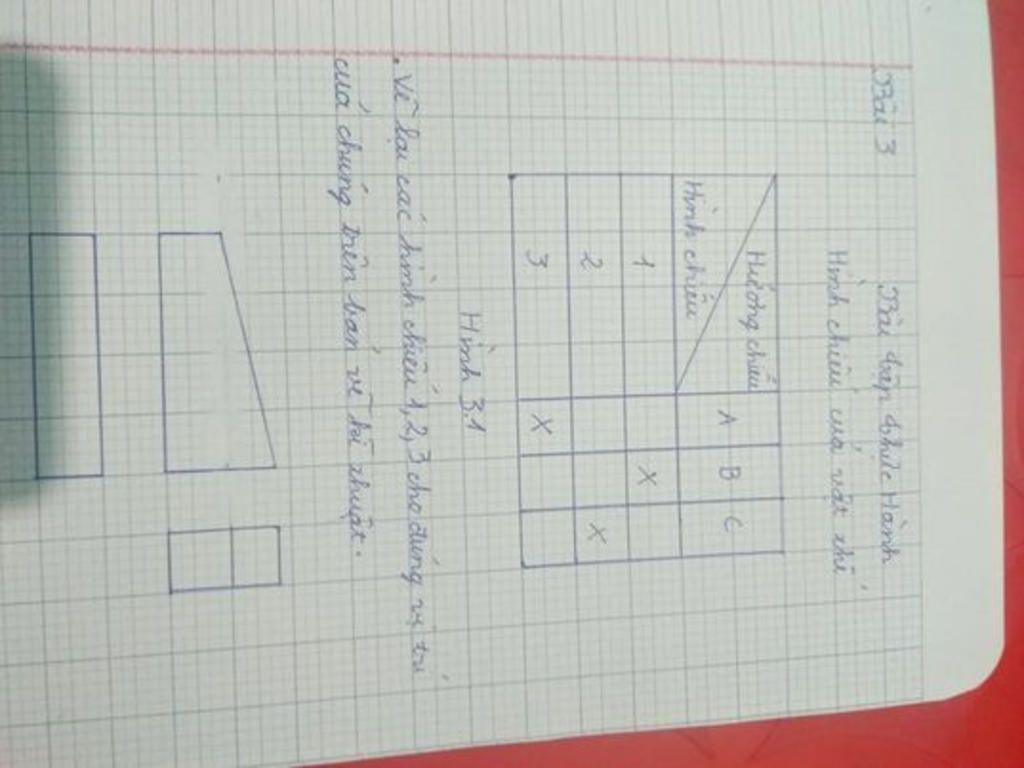 Bài 3
Bài tập thực Hành
Hình chiếu của vật thể
Hướng chiếu
Hình chiếu
A B C
1 X
2 X
3 X
Hình 3.1
. Vẽ lại các hình chiếu 1, 2, 3 cho đúng vị trí
của chúng trên bản vẽ kĩ thuật.